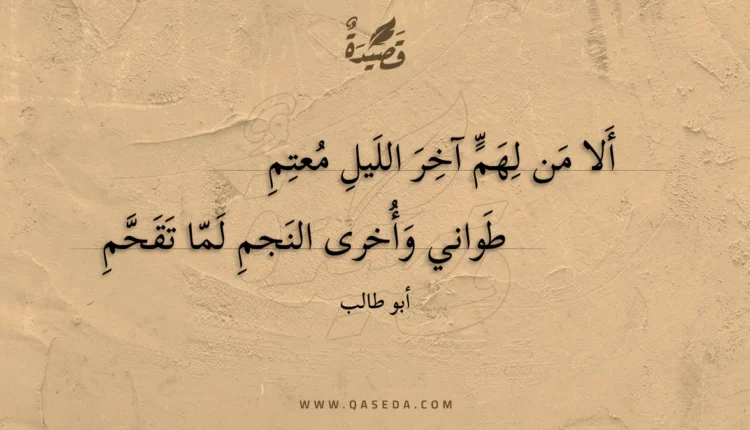 قَصِيدَةٌ
أَلا مَن لِهَمٍّ آخِرَ اللَيلِ مُعتِمِ
طَواني وَأُخرى النَجمِ لَمّا تَقَحَّمِ
أبو طالب
WWW.QASEDA.COM